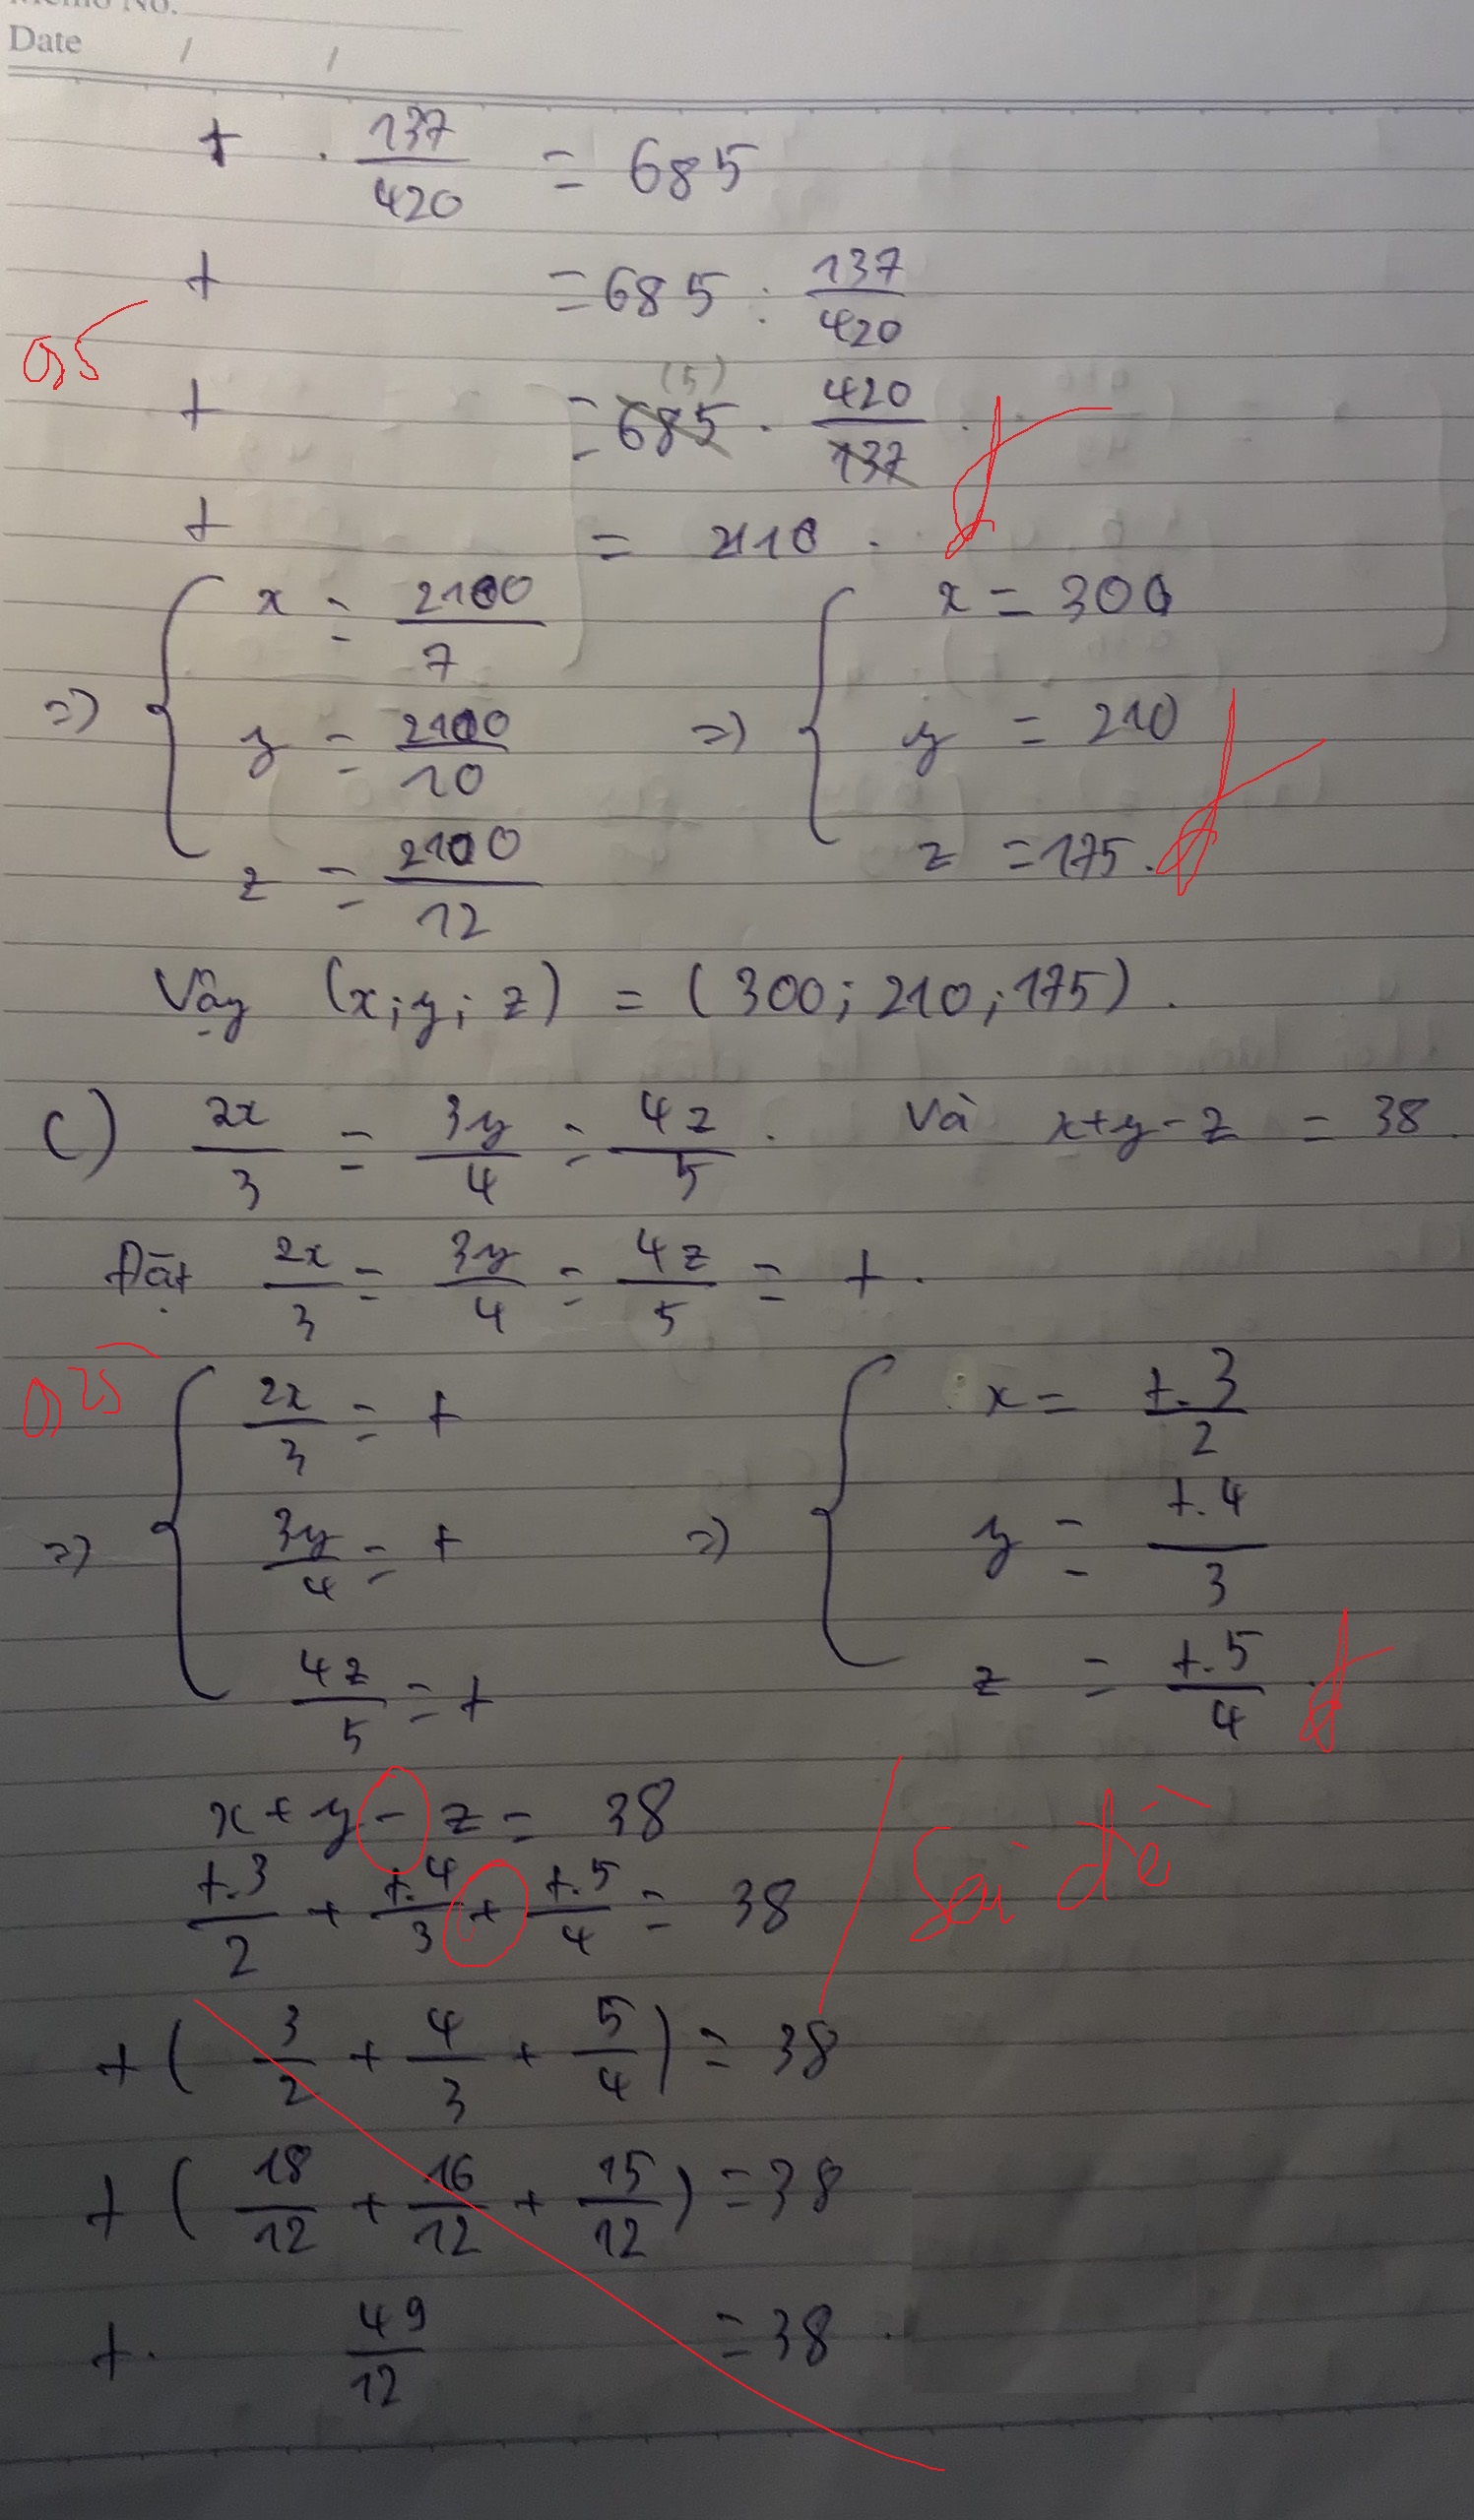 Memo No.
Date / /
t . 137/420 = 685
t = 685 : 137/420
0,5
t = 685 (5) . 420/137 .
t = 2100 .
=> { x = 2100/7 => { x = 300
y = 2100/10 y = 210
z = 2100/12 z = 175 .
Vậy (x; y; z) = (300; 210; 175) .
c) 2x/3 = 3y/4 = 4z/5 . Và x+y-z = 38 .
Đặt 2x/3 = 3y/4 = 4z/5 = t .
0,25
=> { 2x/3 = t => { x = t.3/2
3y/4 = t y = t.4/3
4z/5 = t z = t.5/4 .
x + y - z = 38
t.3/2 + t.4/3 + t.5/4 = 38 Sai đề
t ( 3/2 + 4/3 + 5/4 ) = 38
t ( 18/12 + 16/12 + 15/12 ) = 38
t . 49/12 = 38 .